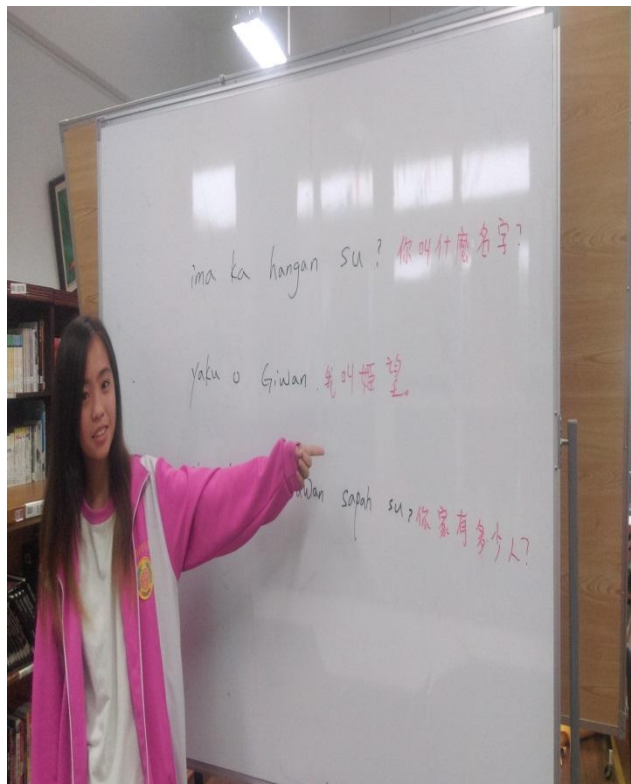 ima ka hangan su? 你叫什麼名字?
yaku o Giwan. 我叫姬望。
sapah su, 你家有多少人?